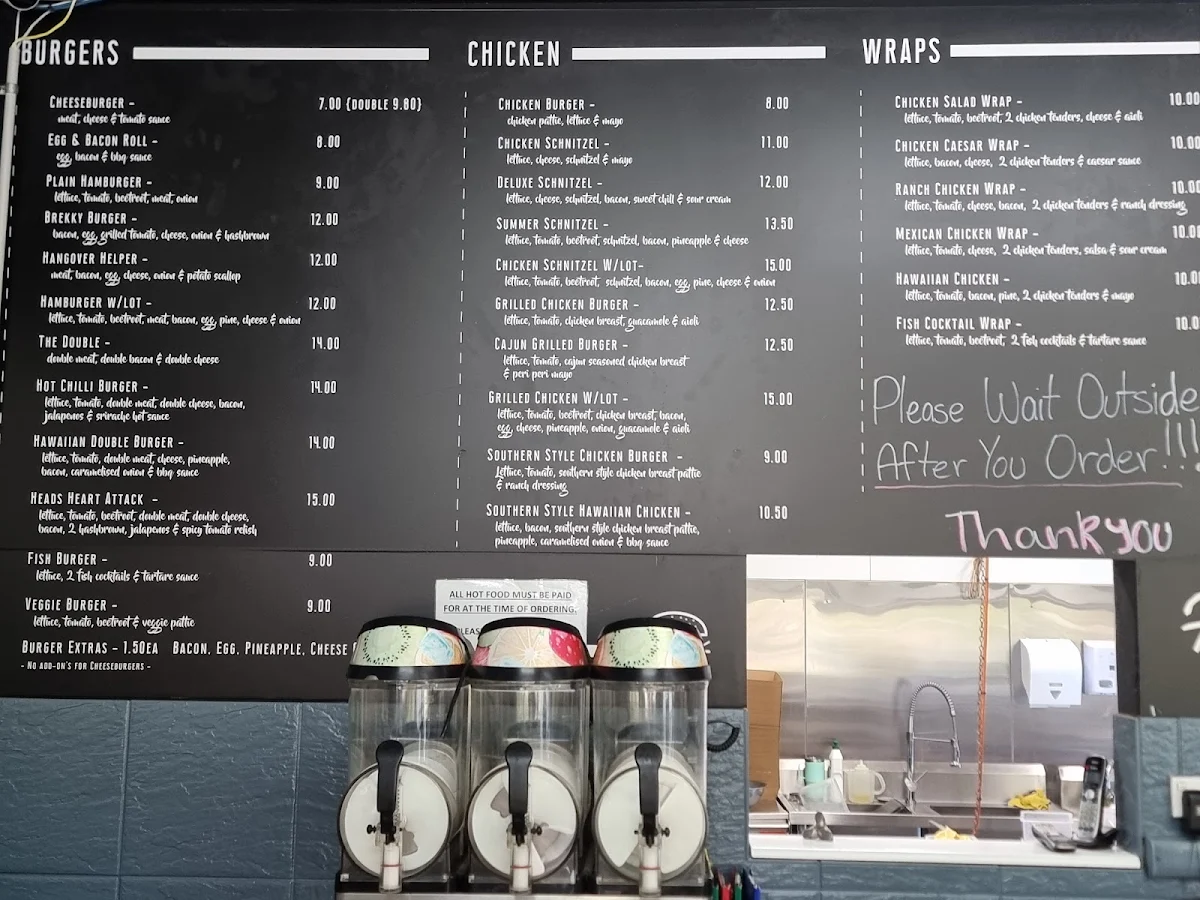 BURGERS
CHEESEBURGER - 7.00 {DOUBLE 9.80}
meat, cheese & tomato sauce
EGG & BACON ROLL - 8.00
egg, bacon & bbq sauce
PLAIN HAMBURGER - 9.00
lettuce, tomato, beetroot, meat, onion
BREKKY BURGER - 12.00
bacon, egg, grilled tomato, cheese, onion & hashbrown
HANGOVER HELPER - 12.00
meat, bacon, egg, cheese, onion & potato scallop
HAMBURGER W/LOT - 12.00
lettuce, tomato, beetroot, meat, bacon, egg, pine, cheese & onion
THE DOUBLE - 14.00
double meat, double bacon & double cheese
HOT CHILLI BURGER - 14.00
lettuce, tomato, double meat, double cheese, bacon,
jalapenos & srirache hot sauce
HAWAIIAN DOUBLE BURGER - 14.00
lettuce, tomato, double meat, cheese, pineapple,
bacon, caramelised onion & bbq sauce
HEADS HEART ATTACK - 15.00
lettuce, tomato, beetroot, double meat, double cheese,
bacon, 2 hashbrown, jalapenos & spicy tomato relish
FISH BURGER - 9.00
lettuce, 2 fish cocktails & tartare sauce
VEGGIE BURGER - 9.00
lettuce, tomato, beetroot & veggie pattie
BURGER EXTRAS - 1.50EA BACON, EGG, PINEAPPLE, CHEESE
- NO ADD-ON'S FOR CHEESEBURGERS -
CHICKEN
CHICKEN BURGER - 8.00
chicken pattie, lettuce & mayo
CHICKEN SCHNITZEL - 11.00
lettuce, cheese, schnitzel & mayo
DELUXE SCHNITZEL - 12.00
lettuce, cheese, schnitzel, bacon, sweet chilli & sour cream
SUMMER SCHNITZEL - 13.50
lettuce, tomato, beetroot, schnitzel, bacon, pineapple & cheese
CHICKEN SCHNITZEL W/LOT- 15.00
lettuce, tomato, beetroot, schnitzel, bacon, egg, pine, cheese & onion
GRILLED CHICKEN BURGER - 12.50
lettuce, tomato, chicken breast, guacamole & aioli
CAJUN GRILLED BURGER - 12.50
lettuce, tomato, cajun seasoned chicken breast
& peri peri mayo
GRILLED CHICKEN W/LOT - 15.00
lettuce, tomato, beetroot, chicken breast, bacon,
egg, cheese, pineapple, onion, guacamole & aioli
SOUTHERN STYLE CHICKEN BURGER - 9.00
Lettuce, tomato, southern style chicken breast pattie
& ranch dressing
SOUTHERN STYLE HAWAIIAN CHICKEN - 10.50
lettuce, bacon, southern style chicken breast pattie,
pineapple, caramelised onion & bbq sauce
WRAPS
CHICKEN SALAD WRAP - 10.00
lettuce, tomato, beetroot, 2 chicken tenders, cheese & aioli
CHICKEN CAESAR WRAP - 10.00
lettuce, bacon, cheese, 2 chicken tenders & caesar sauce
RANCH CHICKEN WRAP - 10.00
lettuce, tomato, cheese, bacon, 2 chicken tenders & ranch dressing
MEXICAN CHICKEN WRAP - 10.00
lettuce, tomato, cheese, 2 chicken tenders, salsa & sour cream
HAWAIIAN CHICKEN - 10.0
lettuce, tomato, bacon, pine, 2 chicken tenders & mayo
FISH COCKTAIL WRAP - 10.0
lettuce, tomato, beetroot, 2 fish cocktails & tartare sauce
Please Wait Outside
After You Order!!!
Thank you
ALL HOT FOOD MUST BE PAID
FOR AT THE TIME OF ORDERING.